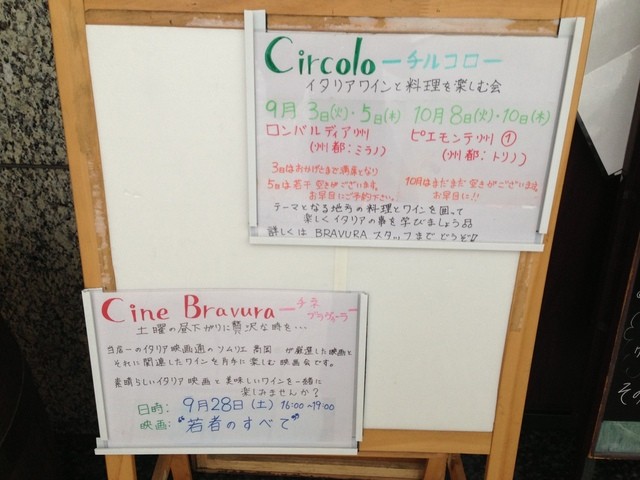 Circolo ーチルコローー
イタリアワインと料理を楽しむ会
9月 3日(火)・5日(木) 10月8日(火)・10日(木)
ロンバルディア州 ピエモンテ州①
(州都:ミラノ) (州都:トリノ)
3日はおかげさまで満席となり
5日は若干空きがございます。 10月はまだまだ空きがございます。
お早目にご予約下さい。 お早目に!!
テーマとなる地方の料理とワインを囲って
楽しくイタリアの事を学びましょう
詳しくは BRAVURA スタッフまで どうぞ
Cine Bravura ーチネ
ブラヴーラー
土曜の昼下がりに贅沢な時を・・・
当店一のイタリア映画通のソムリエ 高岡 が厳選した映画と
それに関連したワインを片手に楽しむ映画会です。
素晴らしいイタリア映画と美味しいワインを一緒に
楽しみませんか?
日時: 9月28日(土) 16:00~19:00
映画: "若者のすべて"